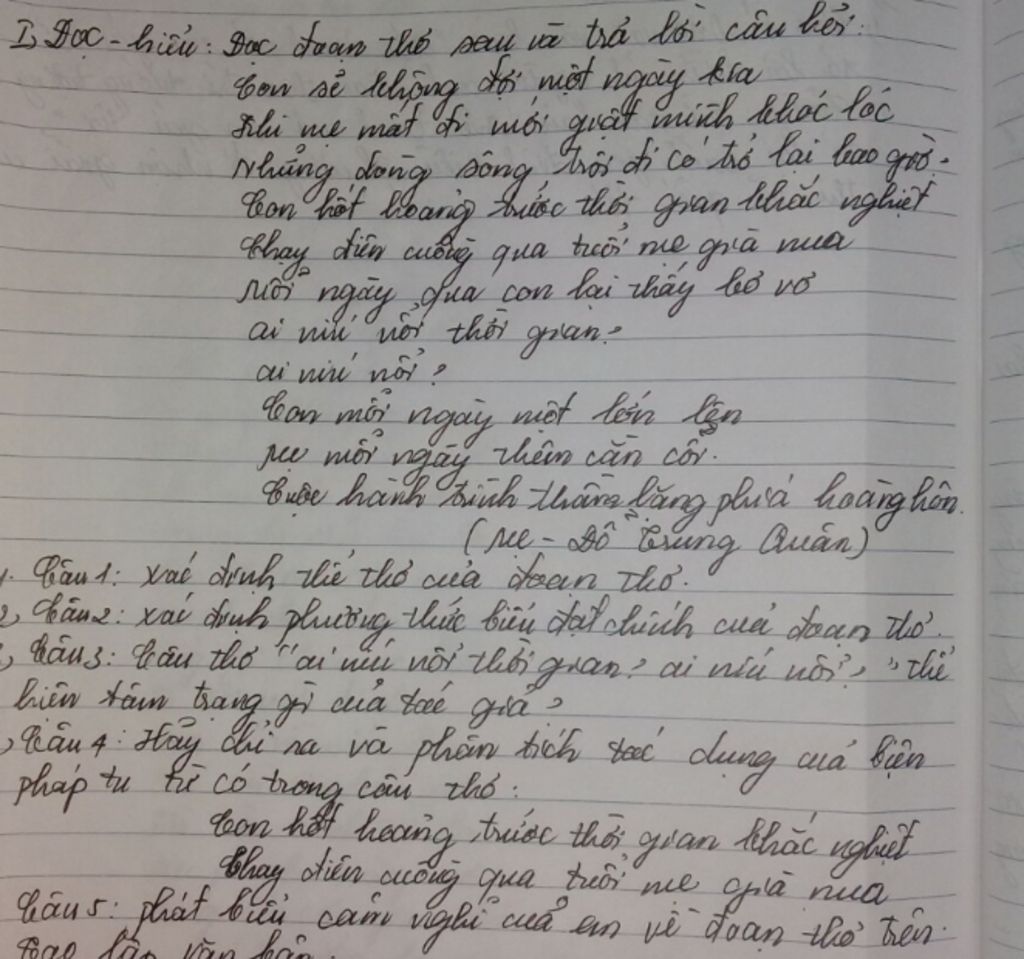 I, Đọc - hiểu: Đọc đoạn thơ sau và trả lời câu hỏi:
Con sẽ không đợi một ngày kia
Khi mẹ mất đi mới giật mình khóc lóc
Những dòng sông trôi đi có trở lại bao giờ.
Con hốt hoảng trước thời gian khắc nghiệt
Chạy điên cuồng qua tuổi mẹ già nua
Mỗi ngày qua con lại thấy bơ vơ
ai níu nổi thời gian?
ai níu nổi?
Con mỗi ngày một lớn lên
Mẹ mỗi ngày thêm cằn cỗi.
Cuộc hành trình thầm lặng phía hoàng hôn.
(Mẹ - Đỗ Trung Quân)
1. Câu 1: Xác định thể thơ của đoạn thơ.
2, Câu 2: Xác định phương thức biểu đạt chính của đoạn thơ.
, Câu 3: Câu thơ "ai níu nổi thời gian? ai níu nổi?" thể
hiện tâm trạng gì của tác giả?
, Câu 4: Hãy chỉ ra và phân tích tác dụng của biện
pháp tu từ có trong câu thơ:
Con hốt hoảng trước thời gian khắc nghiệt
Chạy điên cuồng qua tuổi mẹ già nua
Câu 5: phát biểu cảm nghĩ của em về đoạn thơ trên.